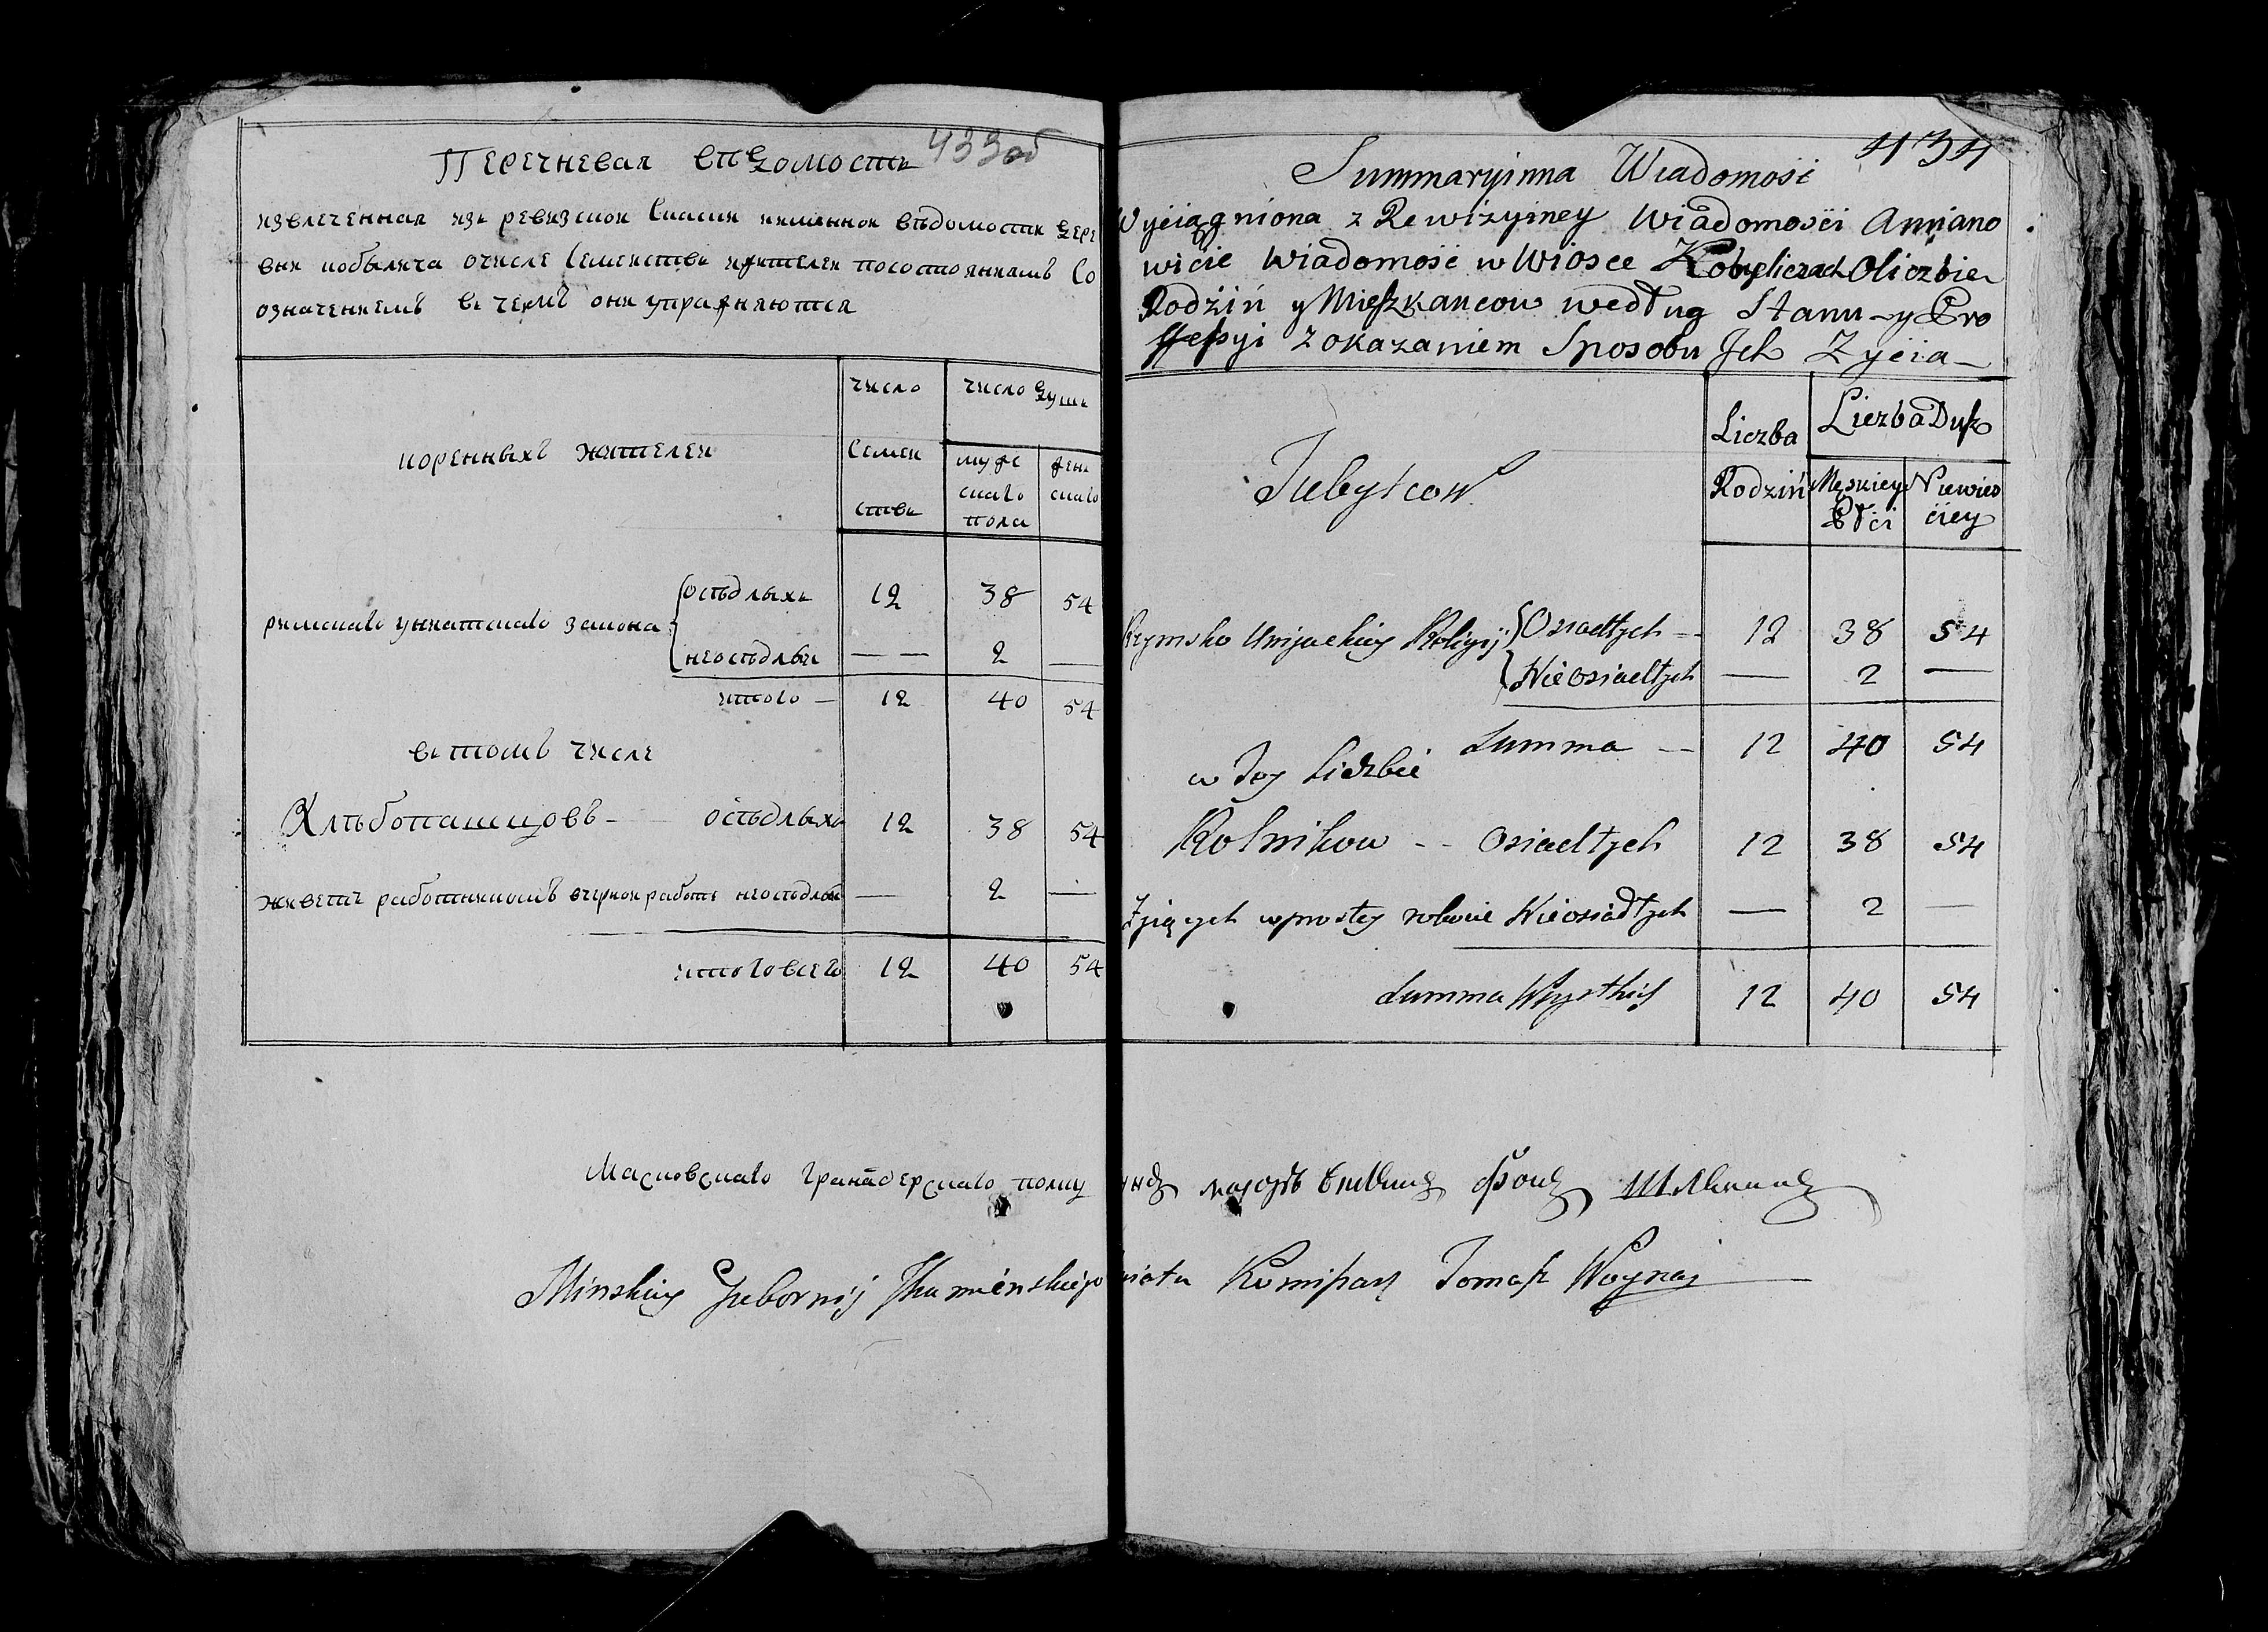 433об
Перечневая вѣдомость
извлеченная изъ ревизской сказки именной вѣдомости дере
вни кобылича очисле семействъ ижителей посостояниямъ со
означениемъ въ чемъ они упражняются
число
число душъ
коренныхъ жителей
семей
ствъ
муже
скаго
пола
жен
скаго
римскаго униатскаго закона
осѣдлыхъ 12 38 54
неосѣдлы — — 2 —
итого — 12 40 54
въ томъ числе
Хлѣбопашцовъ - осѣдлыхъ 12 38 54
живетъ работникомъ вчерной работѣ неосѣдлой — 2 —
итого всего 12 40 54
434
Summaryinna Wiadomość
Wyciągniona z Rewizyiney Wiadomości Amiano
wicie Wiadomość w Wiosce Kobyliczach Oliczbie
Rodziń y Mieszkancow według Stanu y Pro
ffessyi Z okazaniem Sposobu Jch Zycia
Tubylcow
Liczba
Rodziń
Liczba Dusz
Męskiey
Płci
Niewies
ciey
Rzymsko Unijackiey Religij
Osiadłych -- 12 38 54
Nieosiadłych — 2 —
Summa -- 12 40 54
w Tey Liczbie
Rolnikow -- Osiadłych 12 38 54
Zyiących wprostey robocie Nieosiadłych — 2 —
Summa Wszystkich 12 40 54
Московскаго Гранадерскаго полку маіоръ фонъ
Minskiey Gubernij Jhumenskiego Komissarz Tomasz Woyna